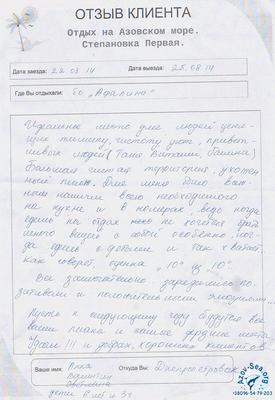 ОТЗЫВ КЛИЕНТА
Отдых на Азовском море.
Степановка Первая.
Дата заезда: 22.08.14
Дата выезда: 25.08.14
Где Вы отдыхали: БО "Адалина"
Идеальное место для людей ценя-
щих тишину, чистоту, уют, привет-
ливых людей (Таня, Виталий, Галина)
Большая чистая территория, ухожен-
ный пляж. Для меня было важ-
ным наличие всего необходимого
на кухне и в номерах, ведь когда
едешь на отдых
вещей с собой особенно, ког-
да едешь с детьми и так хватает.
Как говорят, оценка "10" из "10".
Вы замечательно зарядились по-
зитивом и положительными эмоциями...
Пусть к следующему году сбудутся все
ваши планы и самое
Удачи !!! и добрых, хороших клиентов
Ваше имя: Анна
Валентин
Откуда Вы: Днепропетровск
дети 8 лет и 3 г.
Azov-Sea.org
+38096-54-79-203